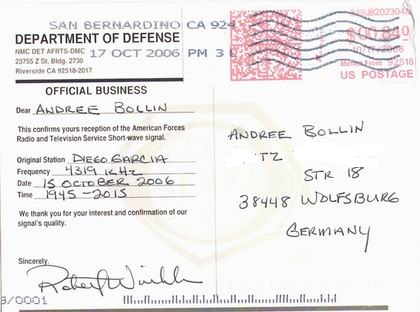 SAN BERNARDINO CA 924
17 OCT 2006 PM 3 L
DEPARTMENT OF DEFENSE
NMC DET AFRTS-DMC
23755 Z St. Bldg. 2730
Riverside CA 92518-2017
$00.840
10/17/2006
Mailed From 92518
US POSTAGE
OFFICIAL BUSINESS
Dear ANDREE BOLLIN
This confirms yours reception of the American Forces
Radio and Television Service Short-wave signal.
Original Station DIEGO GARCIA
Frequency 4319 KHz
Date 15 OCTOBER 2006
Time 1945-2015
We thank you for your interest and confirmation of our
signal's quality.
Sincerely,
ANDREE BOLLIN
TZ
STR 18
38448 WOLFSBURG
GERMANY